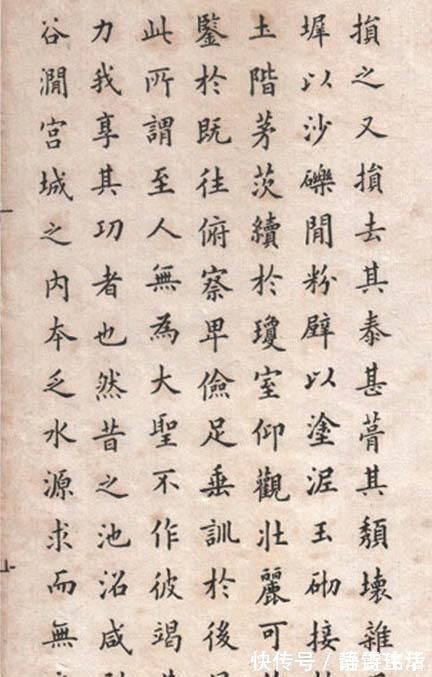 損之又損去其泰甚葺其頹壞雜
墀以沙礫閒粉壁以塗泥玉砌接
土階茅茨續於瓊室仰觀壯麗可
鑒於既往俯察卑儉足垂訓於後
此所謂至人無為大聖不作彼竭
力我享其功者也然昔之池沼咸
谷澗宮城之內本乏水源求而無
快传号/